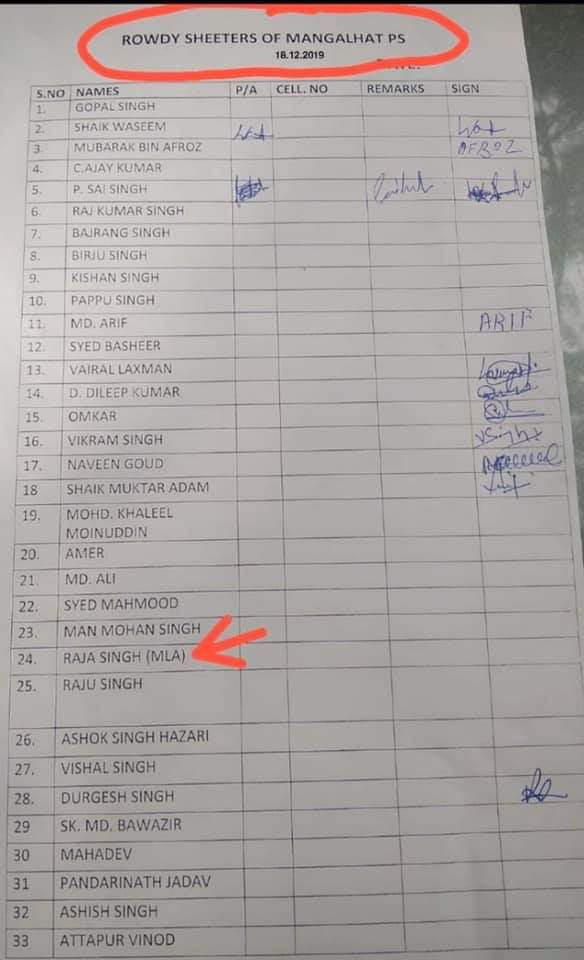 ROWDY SHEETERS OF MANGALHAT PS
18.12.2019
S.NO NAMES P/A CELL. NO REMARKS SIGN
1. GOPAL SINGH
2. SHAIK WASEEM
3. MUBARAK BIN AFROZ AFROZ
4. C.AJAY KUMAR
5. P. SAI SINGH
6. RAJ KUMAR SINGH
7. BAJRANG SINGH
8. BIRJU SINGH
9. KISHAN SINGH
10. PAPPU SINGH
11. MD. ARIF ARIF
12. SYED BASHEER
13. VAIRAL LAXMAN
14. D. DILEEP KUMAR
15. OMKAR
16. VIKRAM SINGH VSingh
17. NAVEEN GOUD
18 SHAIK MUKTAR ADAM
19. MOHD. KHALEEL
MOINUDDIN
20. AMER
21. MD. ALI
22. SYED MAHMOOD
23. MAN MOHAN SINGH
24. RAJA SINGH (MLA)
25. RAJU SINGH
26. ASHOK SINGH HAZARI
27. VISHAL SINGH
28. DURGESH SINGH
29 SK. MD. BAWAZIR
30 MAHADEV
31 PANDARINATH JADAV
32 ASHISH SINGH
33 ATTAPUR VINOD